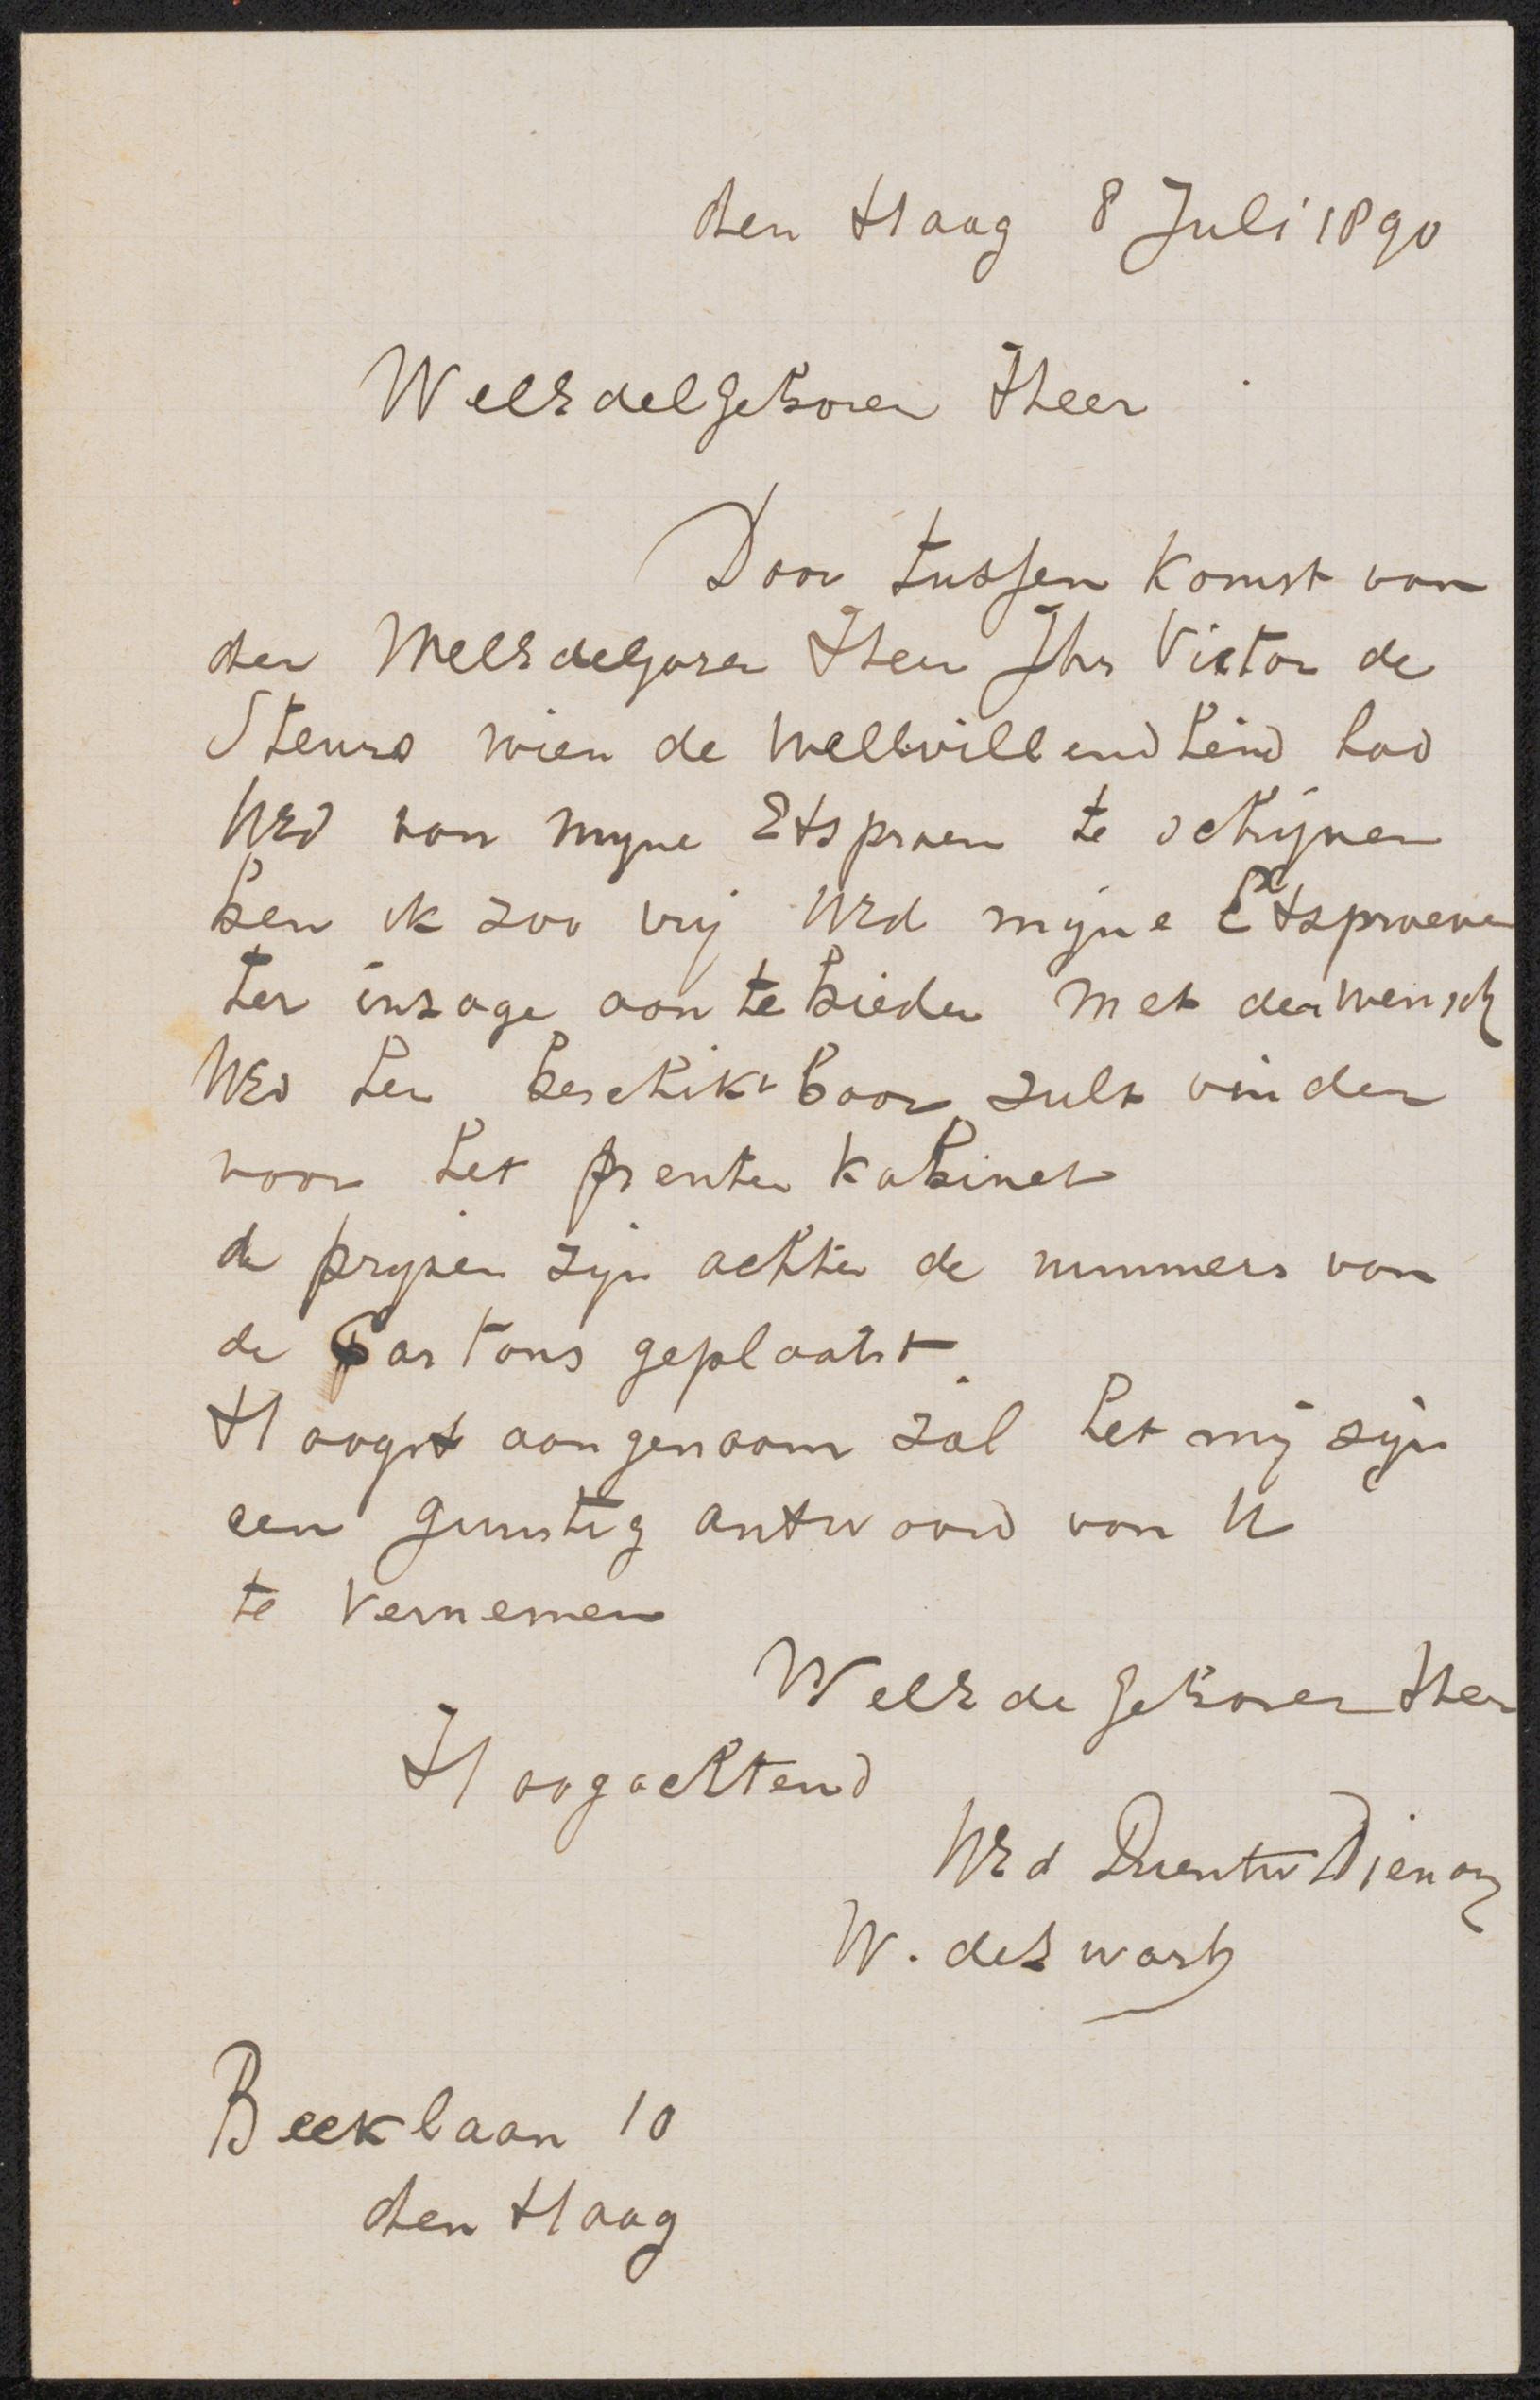 den Haag 8 Juli 1890
WelEdelgeboren Heer
Door tussen komst van
den WelEdelgoren Heer Jhr Victor de
Steurs wien de wellwillendheid had
UEd van myne Etsproen te schijven
ben ik zoo vrij UEd mijne Etsproeven
ter inzage aan te bieden met den wensch
UEd hen beschik baar zult vinden
voor het prenten kabinet
de prysen zijn achter de nummers van
de Cartons geplaatst
Hoogst aangenaam zal het mij zijn
een gunstig antwoord van U
te vernemen
WelEdegeboren Heer
Hoogachtend
UEd Dienaar
W. de Zwart
Beeklaan 10
den Haag